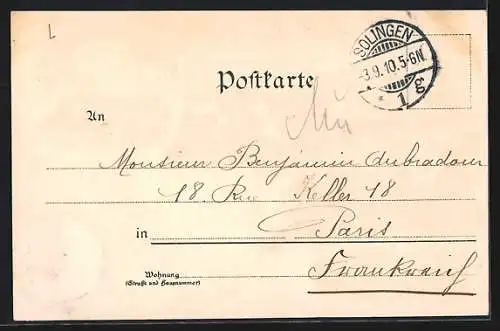 L
SOLINGEN
-3.9.10.5-6N.
* 1 g
Postkarte
An
Monsieur Benjamin Aubradour
18. Rue Keller 18
in Paris
Wohnung
(Straße und Hausnummer)
Frankreich